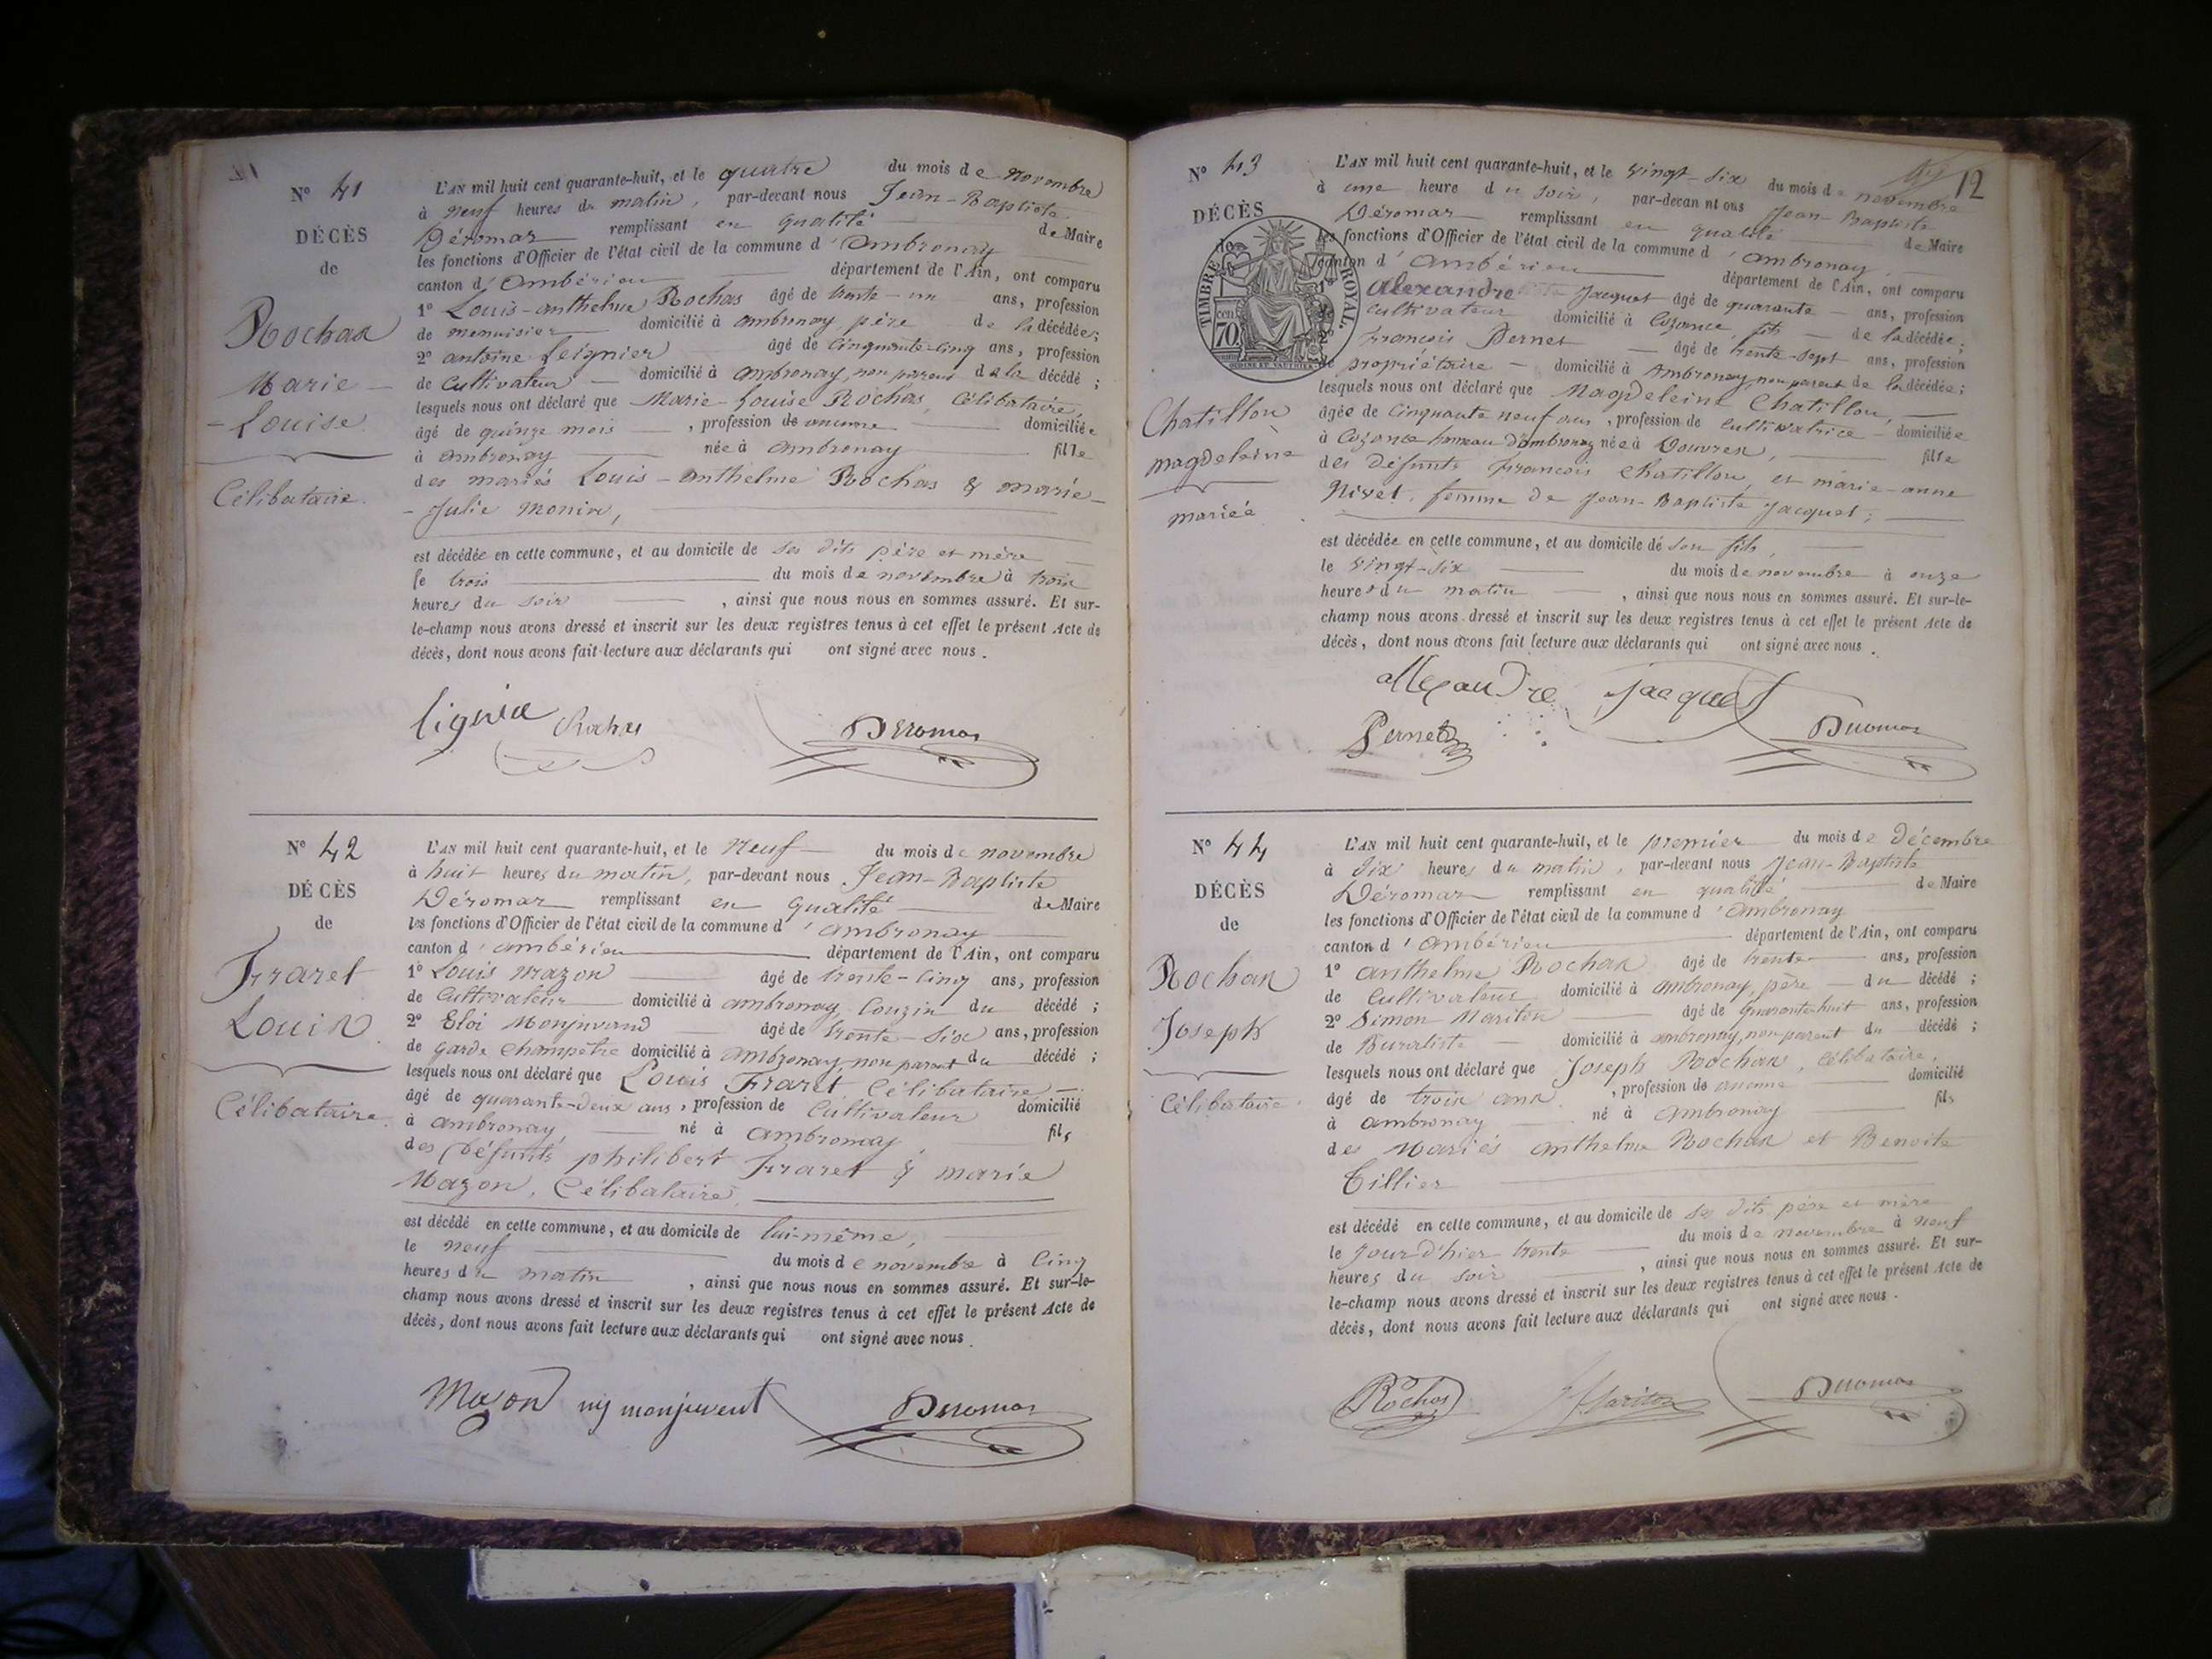 N° 41
DÉCÈS
de
Rochas
Marie-
-Louise.
Célibataire.
L'AN mil huit cent quarante-huit, et le quatre du mois de novembre
à neuf heures du matin, par-devant nous Jean-Baptiste
Déromas remplissant en qualité de Maire
les fonctions d'Officier de l'état civil de la commune d'ambronay
canton d'ambérieu département de l'Ain, ont comparu
1° Louis-anthelme Rochas âgé de trente-un ans, profession
de menuisier domicilié à ambronay, père de la décédée;
2° antoine Leignier âgé de cinquante-cinq ans, profession
de Cultivateur domicilié à ambronay, non parent de la décédé;
lesquels nous ont déclaré que Marie-Louise Rochas, Célibataire,
âgé de quinze mois, profession de aucune domiciliée
à ambronay née à ambronay fille
des mariés Louis-anthelme Rochas & marie-
-Julie monin,
est décédée en cette commune, et au domicile de ses dits père et mère
le trois du mois de novembre à trois
heures du soir, ainsi que nous nous en sommes assuré. Et sur-
le-champ nous avons dressé et inscrit sur les deux registres tenus à cet effet le présent Acte de
décès, dont nous avons fait lecture aux déclarants qui ont signé avec nous.
Rochas Deromas
N° 42
DÉCÈS
de
Fraret
Louis.
Célibataire.
L'AN mil huit cent quarante-huit, et le neuf du mois de novembre
à huit heures du matin, par-devant nous Jean-Baptiste
Déromas remplissant en qualité de Maire
les fonctions d'Officier de l'état civil de la commune d'ambronay
canton d'ambérieu département de l'Ain, ont comparu
1° Louis mazon âgé de trente-cinq ans, profession
de Cultivateur domicilié à ambronay, Couzin du décédé;
2° Eloi Monjuvand âgé de trente-six ans, profession
de garde champêtre domicilié à ambronay, non parent du décédé;
lesquels nous ont déclaré que Louis Fraret, Célibataire
âgé de quarante-deux ans, profession de Cultivateur domicilié
à ambronay né à ambronay fils
des défunts philibert Fraret & marie
Mazon, Célibataire,
est décédé en cette commune, et au domicile de lui-même,
le neuf du mois de novembre à Cinq
heures du matin, ainsi que nous nous en sommes assuré. Et sur-le-
champ nous avons dressé et inscrit sur les deux registres tenus à cet effet le présent Acte de
décès, dont nous avons fait lecture aux déclarants qui ont signé avec nous.
Mazon monjuvent Deromas
12
N° 43
DÉCÈS
de
TIMBRE ROYAL
70
Chatillon
magdeleine
mariée
L'AN mil huit cent quarante-huit, et le vingt-six du mois de novembre
à une heure du soir, par-devan nt ous Jean-Baptiste
Déromas remplissant en qualité de Maire
les fonctions d'Officier de l'état civil de la commune d'ambronay
canton d'ambérieu département de l'Ain, ont comparu
Alexandre Jacquet âgé de quarante ans, profession
Cultivateur domicilié à Cozance, fils de la décédée;
François Pernet âgé de trente-sept ans, profession
de propriétaire domicilié à Ambronay, non parent de la décédée;
lesquels nous ont déclaré que Magdeleine Chatillon,
âgée de Cinquante neuf ans, profession de Cultivatrice domiciliée
à Cozance hameau d'ambronay née à Douvres, fille
des défunts François Chatillon, et marie-anne
Nivet, femme de Jean-Baptiste Jacquet;
est décédée en cette commune, et au domicile de son fils,
le vingt-six du mois de novembre à onze
heures du matin, ainsi que nous nous en sommes assuré. Et sur-le-
champ nous avons dressé et inscrit sur les deux registres tenus à cet effet le présent Acte de
décès, dont nous avons fait lecture aux déclarants qui ont signé avec nous.
allexandre Jacquet
Pernet Deromas
N° 44
DÉCÈS
de
Rochas
Joseph
Célibataire.
L'AN mil huit cent quarante-huit, et le premier du mois de Décembre
à dix heures du matin, par-devant nous Jean-Baptiste
Déromas remplissant en qualité de Maire
les fonctions d'Officier de l'état civil de la commune d'ambronay
canton d'ambérieu département de l'Ain, ont comparu
1° anthelme Rochas âgé de trente ans, profession
de Cultivateur domicilié à ambronay, père du décédé;
2° Simon Mariton âgé de quarante-huit ans, profession
de Buraliste domicilié à ambronay, non parent du décédé;
lesquels nous ont déclaré que Joseph Rochas, Célibataire,
âgé de trois ans, profession de aucune domicilié
à ambronay né à ambronay fils
des Mariés anthelme Rochas et Benoite
Tillier
est décédé en cette commune, et au domicile de ses dits père et mère
le Jour-d'hier trente du mois de novembre à neuf
heures du soir, ainsi que nous nous en sommes assuré. Et sur-
le-champ nous avons dressé et inscrit sur les deux registres tenus à cet effet le présent Acte de
décès, dont nous avons fait lecture aux déclarants qui ont signé avec nous.
Rochas Mariton Deromas